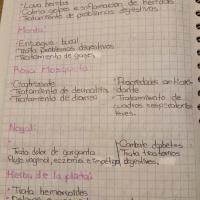 · Lava heridas
· Calma golpes e inflamación de heridas
· Tratamiento de problemas digestivos
Menta:
· Enjuague bucal
· Trata problemas digestivos
· Tratamiento de gases
Rosa Mosqueta
· Cicatrizante
· Tratamiento de dermatitis
· Tratamiento de diarrea
· Propiedades antioxi-
dante
· Tratamiento de
cuadros respiratorios
leves.
Nogal:
· Trata dolor de garganta
flujo vaginal, eczema e impétigo
· Combate diabetes
· Trata trastornos
digestivos.
Hierba de la plata:
· Trata hemorroides